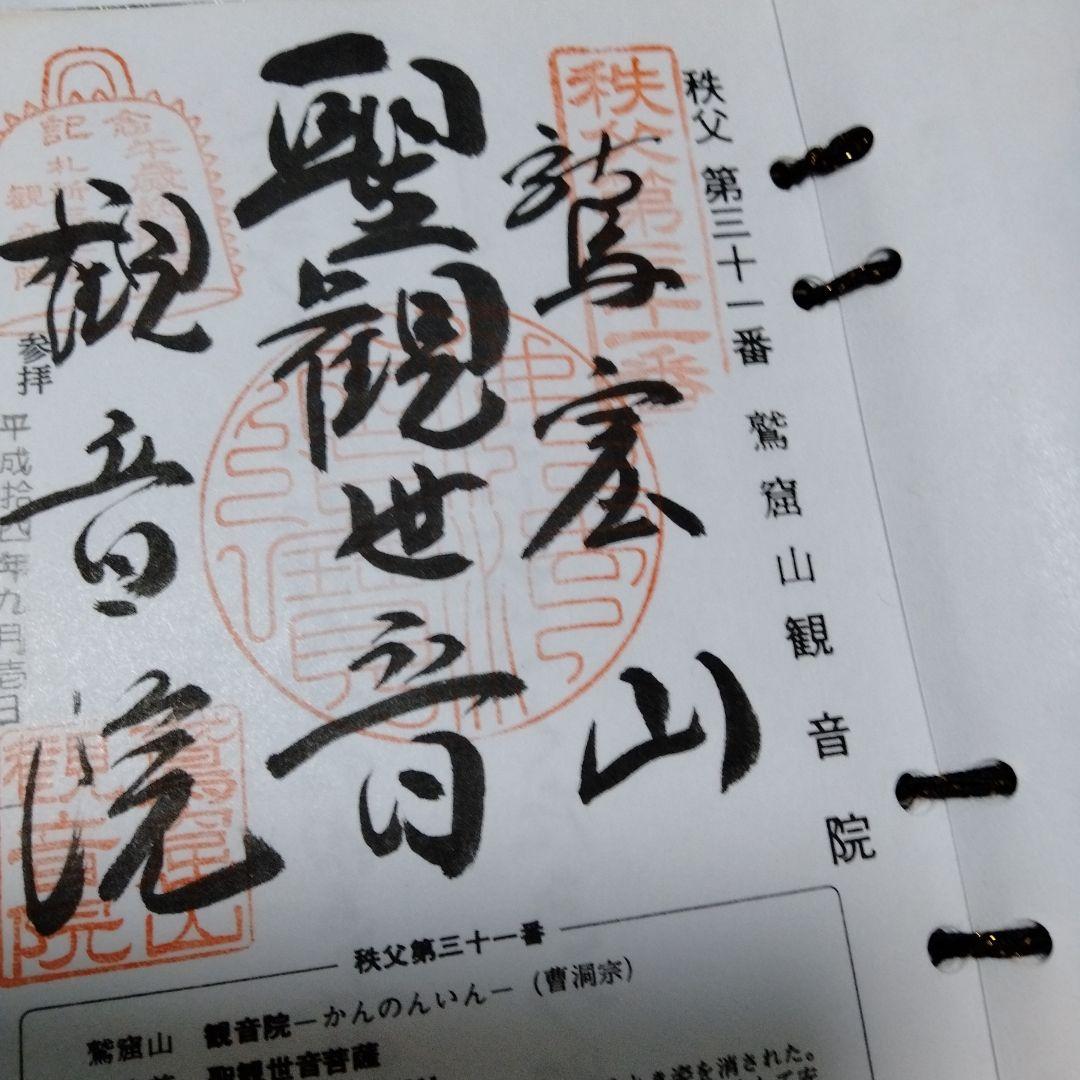 秩父 第三十一番 鷲窟山観音院
秩父第三十一番
鷲窟山
聖観世音
観音院
参拝
平成拾四年九月壱日
鷲窟山
観音院
秩父第三十一番
鷲窟山 観音院−かんのんいん−(曹洞宗)
聖観世音菩薩
姿を消された。